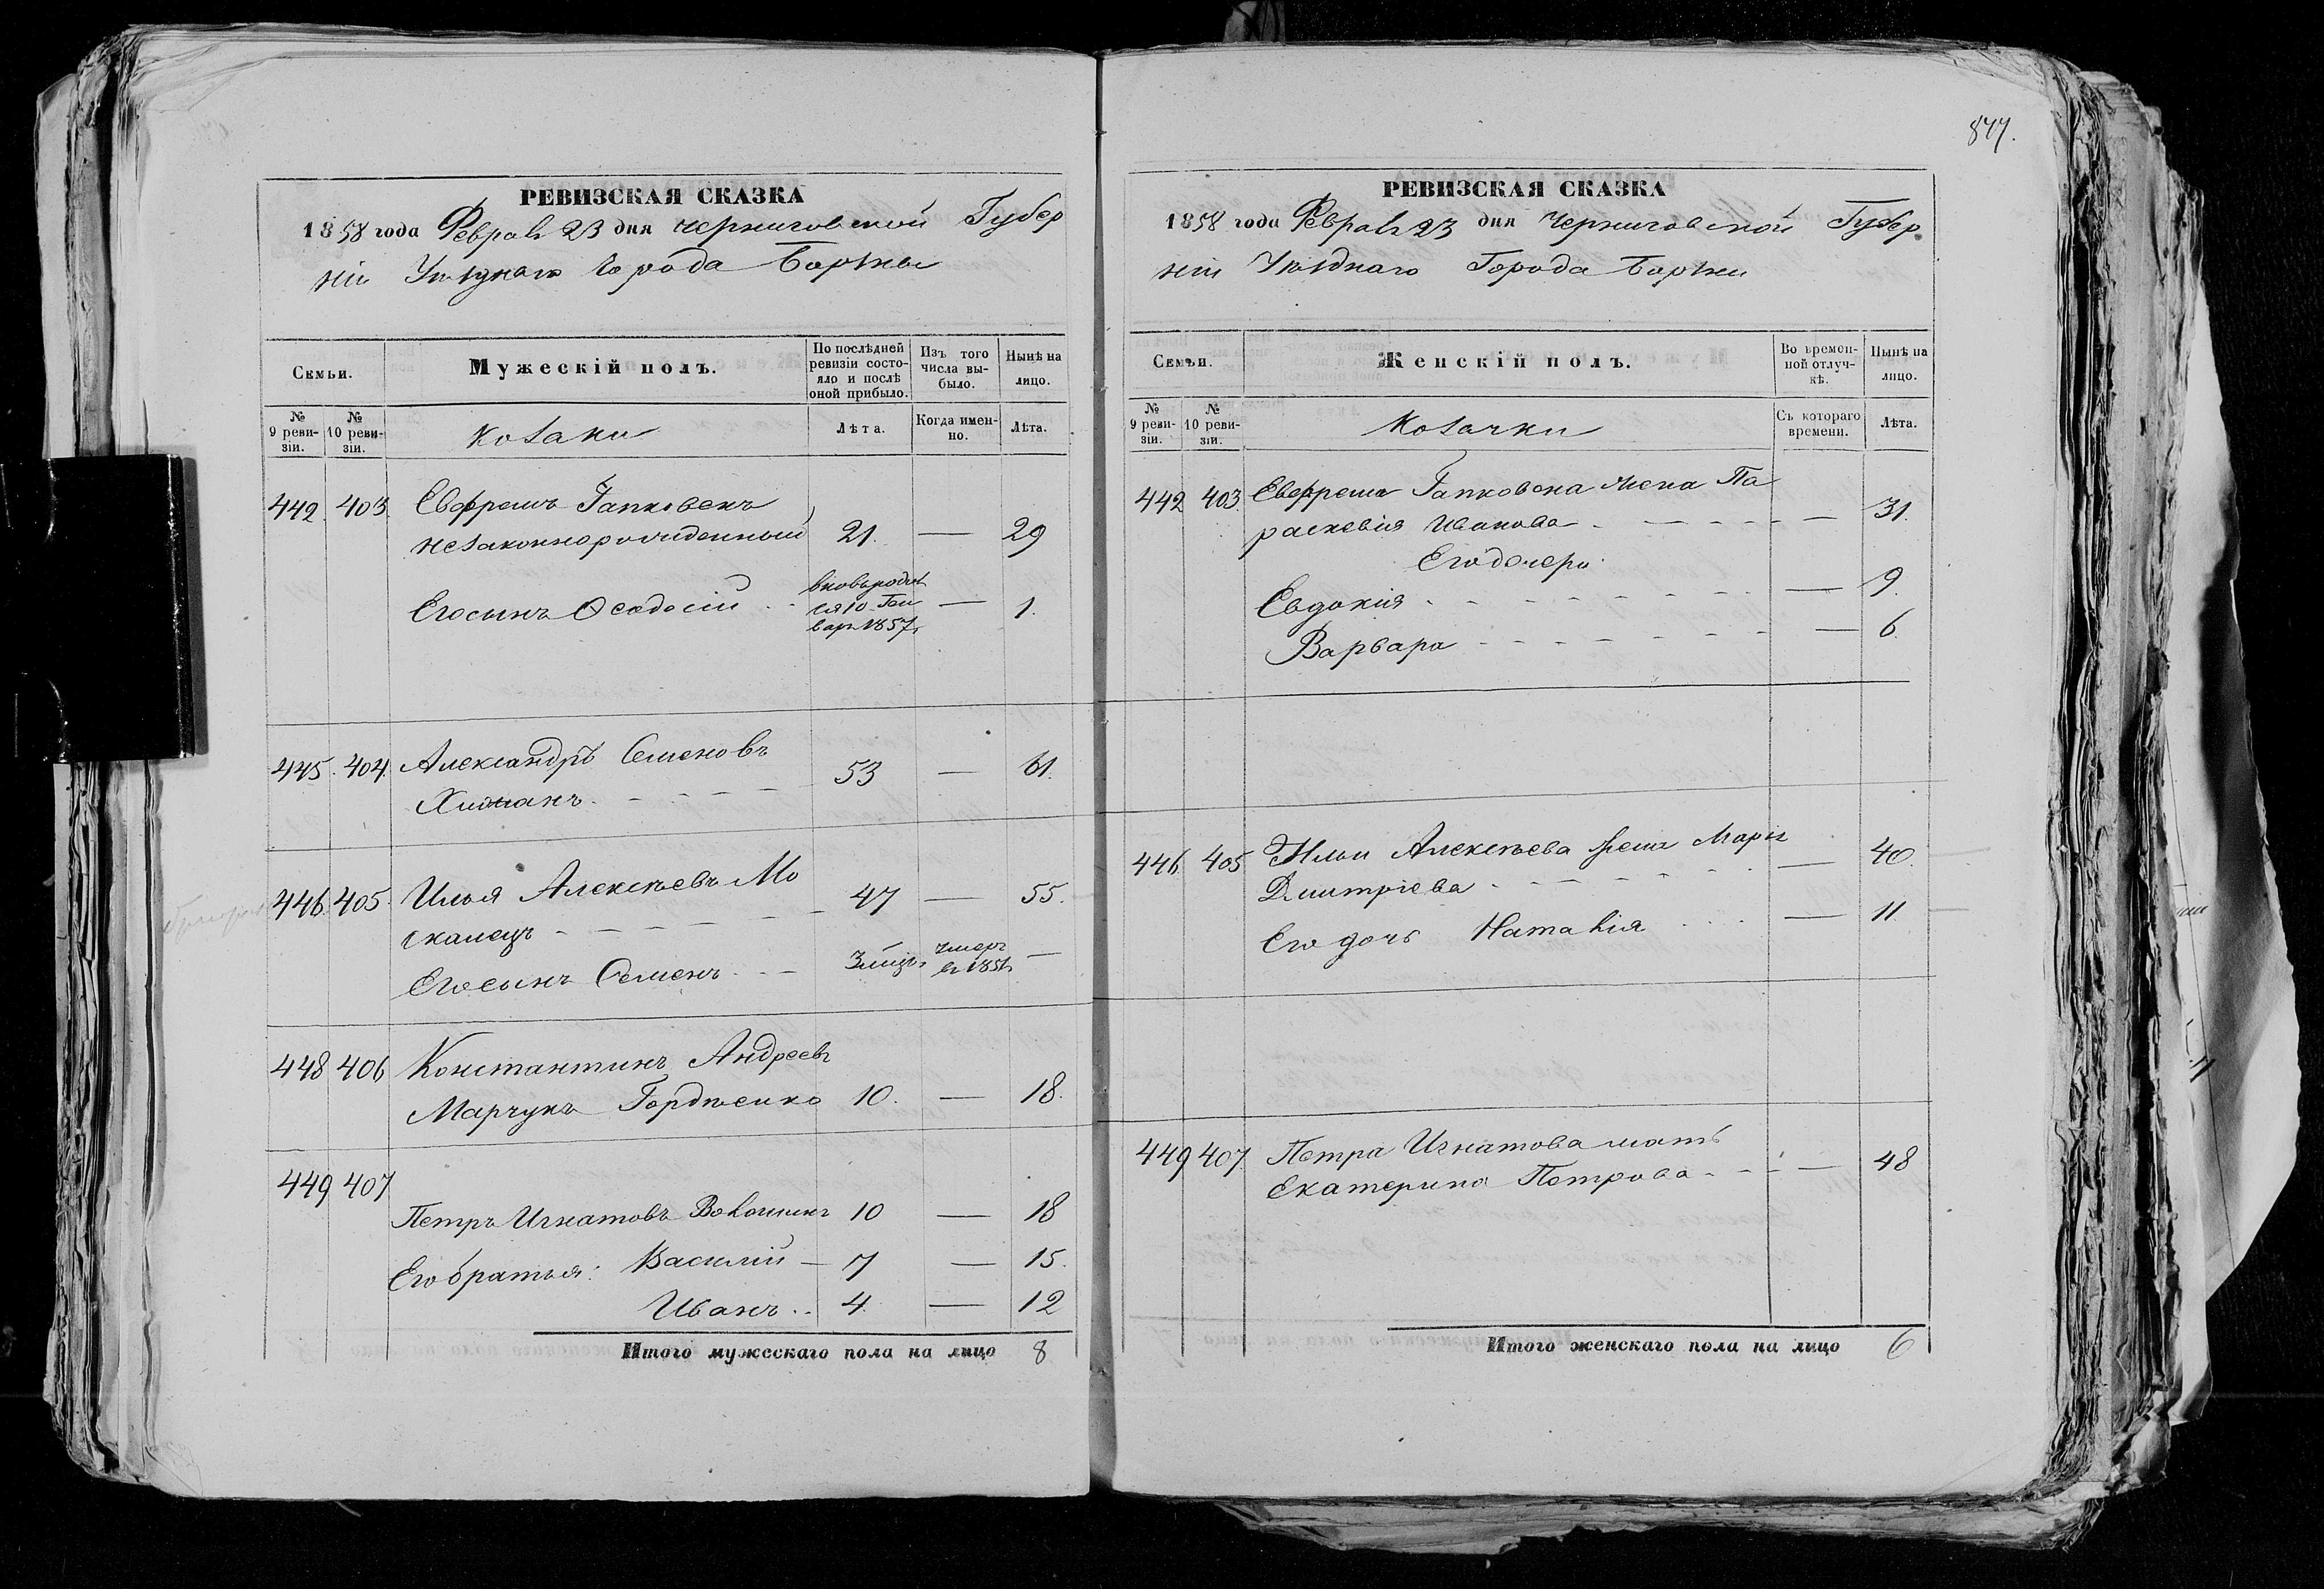 877.
РЕВИЗСКАЯ СКАЗКА
1858 года Феврал 23 дня Черниговской Губер
ніи Уѣзднаго Города Борзны
Семьи.
Мужескій полъ.
По послѣдней ревизіи состояло и послѣ оной прибыло.
Изъ того числа выбыло.
Нынѣ на лицо.
№ 9 ревизіи.
№ 10 ревизіи.
Козаки
Лѣта.
Когда именно.
Лѣта.
442 403 Евфремъ Гапковенъ
незаконнорожденный 21. — 29
Его сынъ Ѳеодосій вновь родил
ся 10 Ген
вар 1857 — 1.
445. 404. Александръ Семеновъ 53 — 61.
446. 405. Илья Алексѣевъ Мо 47 — 55.
скалецъ
Его сынъ Семенъ 3 мѣц. умеръ
въ 1851 —
448 406 Константинъ Андреевъ
Марчукъ Гордѣенко 10. — 18.
449 407
Петръ Игнатовъ Волошинъ 10 — 18
Его братья: Василій — 7 — 15.
Иванъ 4. — 12
Итого мужескаго пола на лицо 8
РЕВИЗСКАЯ СКАЗКА
1858 года Феврал 23 дня Черниговской Губер
ніи Уѣзднаго Города Борзны
Семьи.
Женскій полъ.
Во временной отлучкѣ.
Нынѣ на лицо.
№ 9 ревизіи.
№ 10 ревизіи.
Козачки
Съ котораго времени.
Лѣта.
442 403. Евфрема Гапковена жена Па
раскевія Иванова — 31.
Его дочери
Евдокія — 9.
Варвара — 6.
446 405 Ильи Алексѣева жена Марія
Дмитріева — 40.
Его дочь Наталія — 11
449 407 Петра Игнатова мать
Екатерина Петрова — 48
Итого женскаго пола на лицо 6